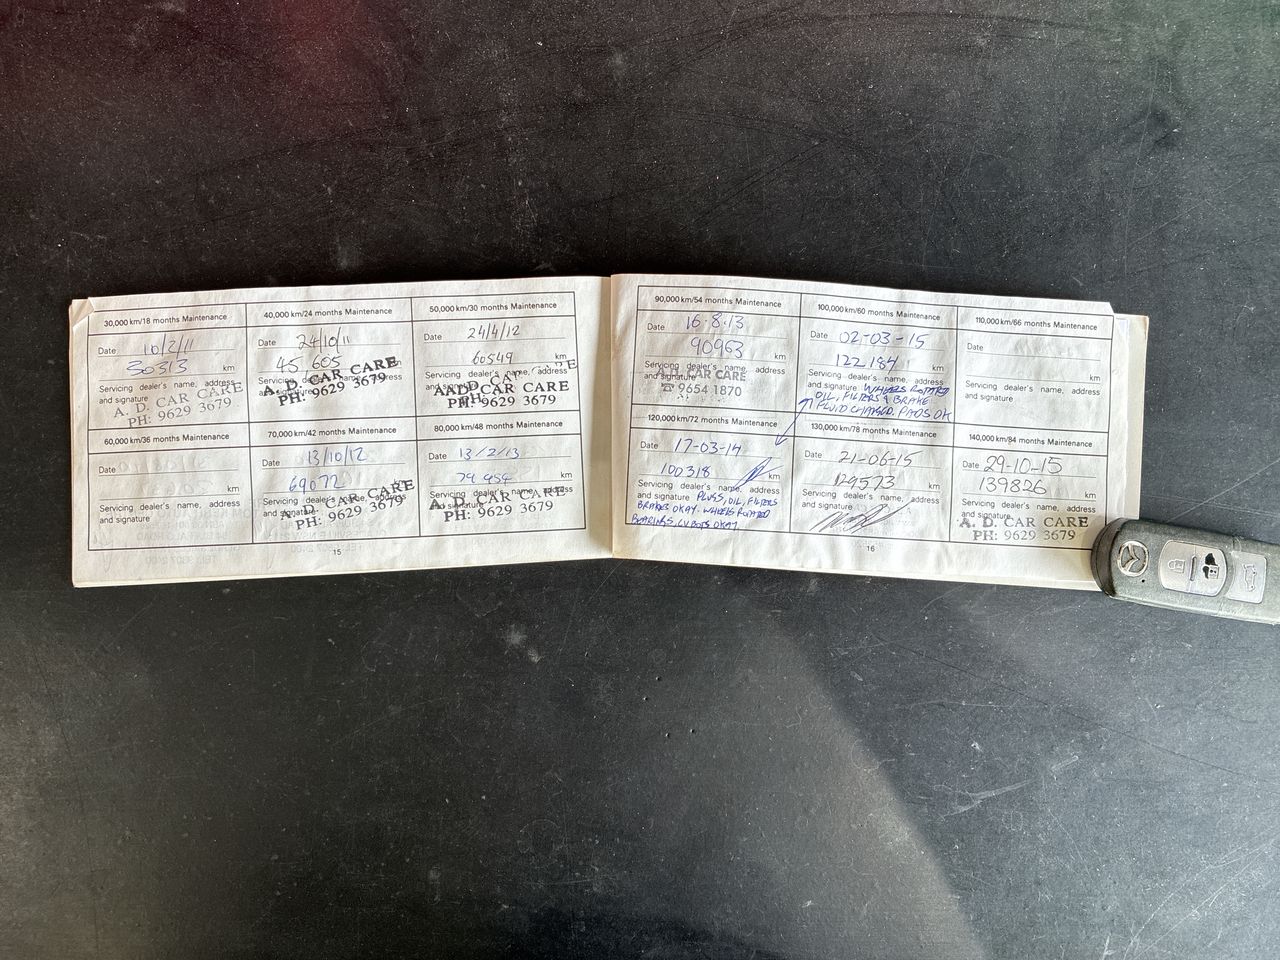 30,000 km/18 months Maintenance
Date 10/2/11
30313 km
Servicing dealer's name, address
and signature
A. D. CAR CARE
PH: 9629 3679
40,000 km/24 months Maintenance
Date 24/10/11
45 605 km
Servicing dealer's name, address
and signature
A. D. CAR CARE
PH: 9629 3679
50,000 km/30 months Maintenance
Date 24/4/12
60549 km
Servicing dealer's name, address
and signature
CAR CARE
PH: 9629 3679
60,000 km/36 months Maintenance
Date
km
Servicing dealer's name, address
and signature
70,000 km/42 months Maintenance
Date 13/10/12
69072 km
Servicing dealer's name, address
and signature
A. D. CAR CARE
PH: 9629 3679
80,000 km/48 months Maintenance
Date 13/2/13
km
Servicing dealer's name, address
and signature
A. D. CAR CARE
PH: 9629 3679
15
90,000 km/54 months Maintenance
Date 16.8.13
90963 km
Servicing dealer's name, address
and signature
CAR CARE
☎ 9654 1870
100,000 km/60 months Maintenance
Date 02-03-15
122184 km
Servicing dealer's name, address
and signature WHEELS ROTATED
OIL, FILTERS & BRAKE
FLUID CHANGED. PADS OK
110,000 km/66 months Maintenance
Date
km
Servicing dealer's name, address
and signature
120,000 km/72 months Maintenance
Date 17-03-14
100318 km
Servicing dealer's name, address
and signature PLUGS, OIL, FILTERS
BRAKES OKAY. WHEELS ROTATED
BEARINGS, CV BOOTS OKAY
130,000 km/78 months Maintenance
Date 21-06-15
129573 km
Servicing dealer's name, address
and signature
140,000 km/84 months Maintenance
Date 29-10-15
139826 km
Servicing dealer's name, address
and signature
A. D. CAR CARE
PH: 9629 3679
16